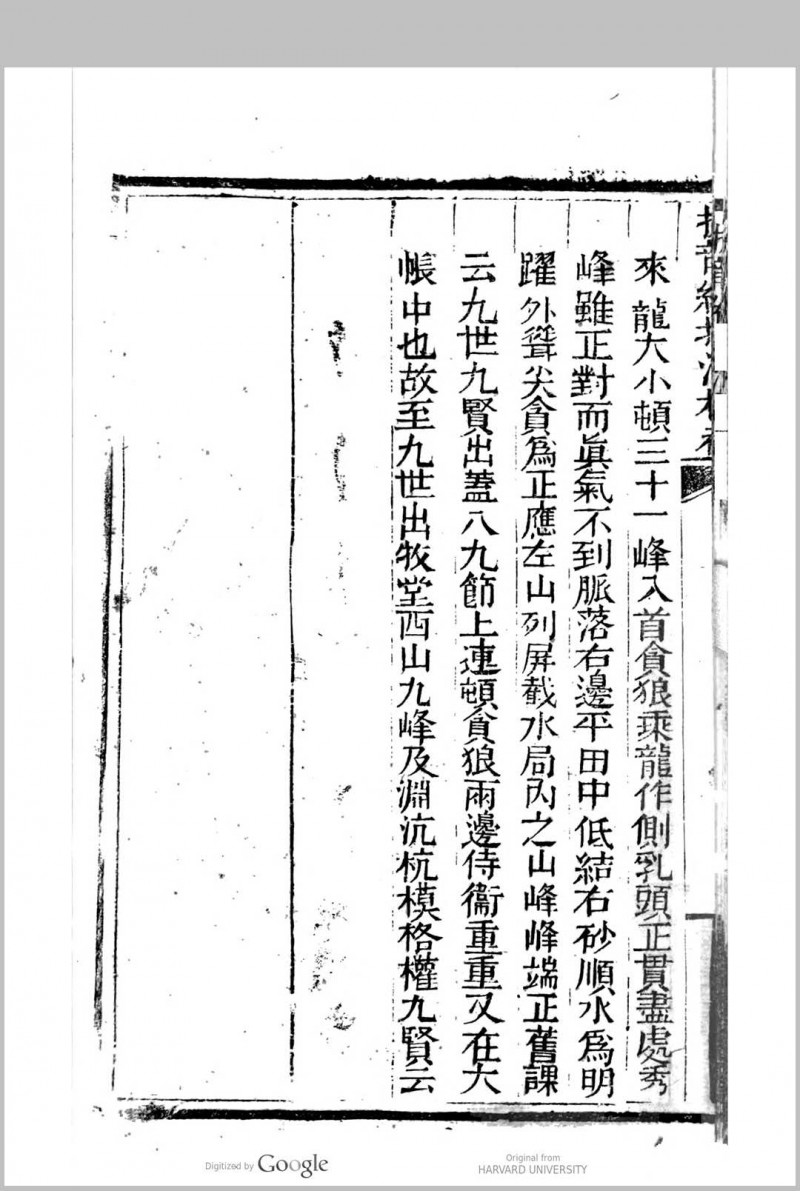 來龍大小頓三十一峰入首貪狼乘龍作側乳頭正貫盡處秀
峰雖正對而眞氣不到脈落右邊平田中低結右砂順水爲明
躍外聳尖貪爲正應左山列屏截水局內之山峰峰端正舊課
云九世九賢出蓋八九節上連頓貪狼兩邊侍衞重重又在大
帳中也故至九世出牧堂西山九峰及淵沆杭模格權九賢云
Digitized by Google
Original from
HARVARD UNIVERSITY